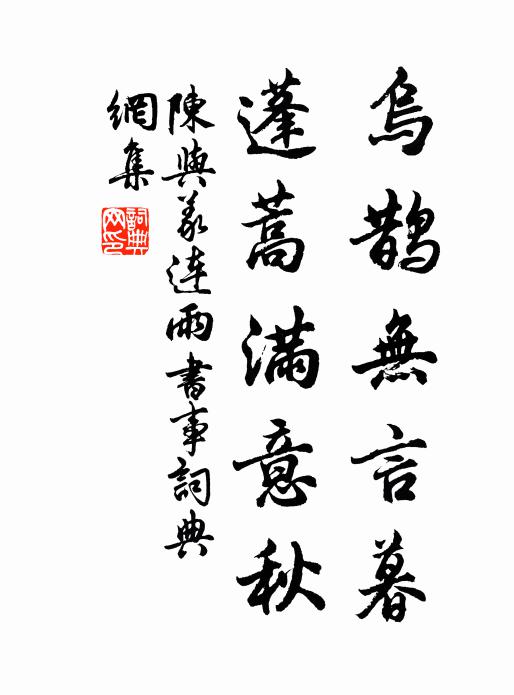 烏鵲無言暮
蓬蒿滿意秋
陳與義連雨書事詞典
網集
詞典
网印